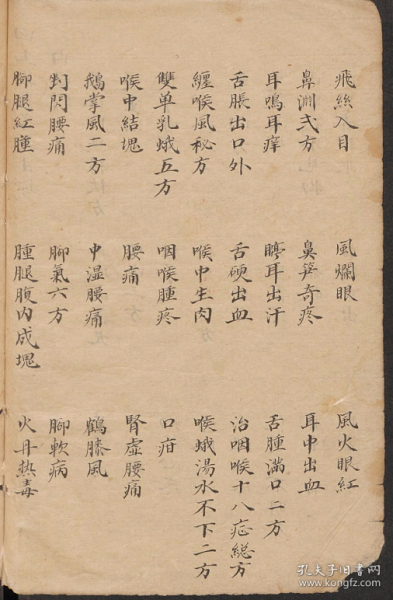 飛絲入目 風爛眼 風火眼紅
鼻淵弍方 鼻笋奇疼 耳中出血
耳鳴耳痒 聤耳出汗 舌腫滿口二方
舌脹出口外 舌硬出血 治咽喉十八症総方
纏喉風秘方 喉中生肉 喉蛾湯水不下二方
雙单乳蛾五方 咽喉腫疼 口疳
喉中結塊 腰痛 腎虛腰痛
鵝掌風二方 中湿腰痛 鶴膝風
閃腰痛 脚氣六方 脚軟病
脚腿紅腫 腫腿腹内成塊 火丹热毒
孔夫子旧书网
www.kongfz.com